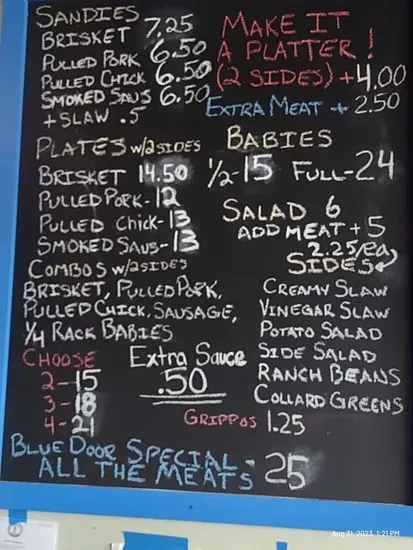 SANDIES
BRISKET 7.25
PULLED PORK 6.50
PULLED CHICK 6.50
SMOKED SAUS 6.50
+ SLAW .5
MAKE IT
A PLATTER!
(2 SIDES) +4.00
EXTRA MEAT + 2.50
PLATES w/2 SIDES
BRISKET 14.50
PULLED PORK- 12
PULLED CHICK- 13
SMOKED SAUS- 13
BABIES
1/2-15 FULL-24
SALAD 6
ADD MEAT + 5
2.25/ea
SIDES
CREAMY SLAW
VINEGAR SLAW
POTATO SALAD
SIDE SALAD
RANCH BEANS
COLLARD GREENS
COMBOS w/2 SIDES
BRISKET, PULLED PORK,
PULLED CHICK, SAUSAGE,
1/4 RACK BABIES
CHOOSE
2-15
3-18
4-21
Extra Sauce
.50
GRIPPOS 1.25
BLUE DOOR SPECIAL-
ALL THE MEATS 25
Aug 31, 2023, 1:21 PM